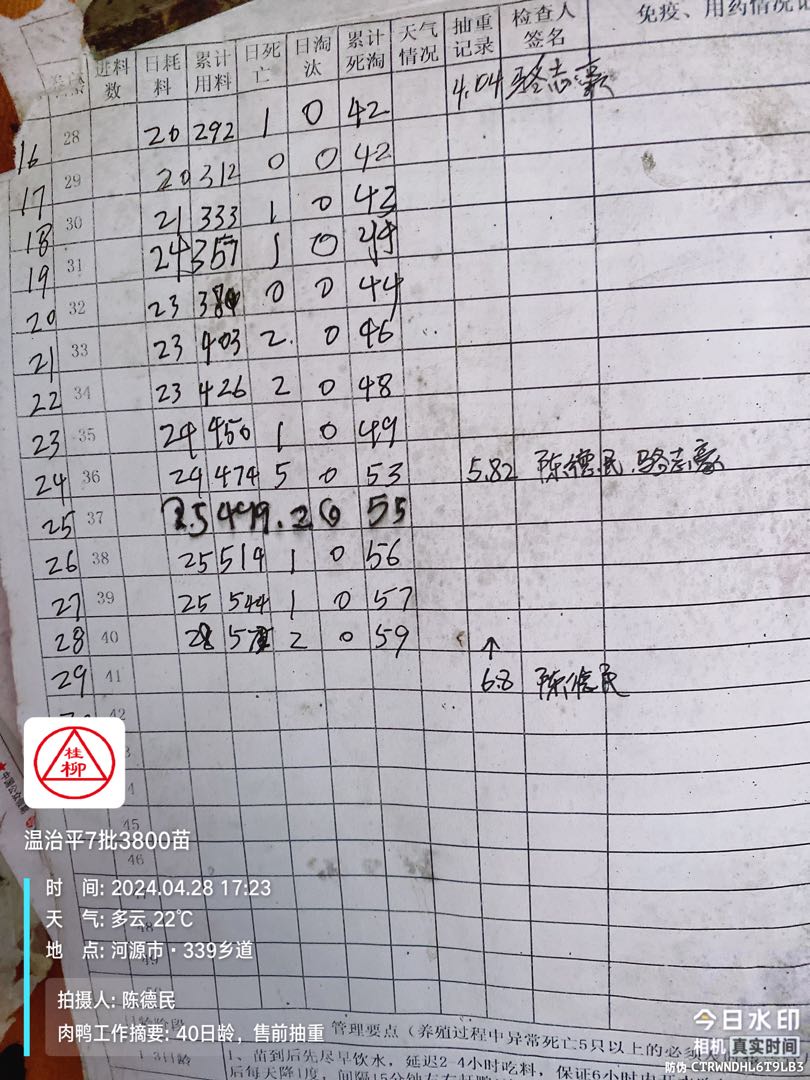 免疫、用药情况记
进料数 日耗料 累计用料 日死亡 日淘汰 累计死淘 天气情况 抽重记录 检查人签名
4.04 骆志豪
16 28 20 292 1 0 42
17 29 20 312 0 0 42
18 30 21 333 1 0 43
19 31 24 357 1 0 44
20 32 23 380 0 0 44
21 33 23 403 2 0 46
22 34 23 426 2 0 48
23 35 24 450 1 0 49
24 36 24 474 5 0 53 5.82 陈德民.骆志豪
25 37 25 499 2 0 55
26 38 25 514 1 0 56
27 39 25 544 1 0 57
28 40 28 572 2 0 59 ↑
29 41 6.8 陈德民
42
桂柳
45
46
温治平7批3800苗
时 间: 2024.04.28 17:23
天 气: 多云 22℃
48
地 点: 河源市·339乡道
49
拍摄人: 陈德民
肉鸭工作摘要: 40日龄，售前抽重
管理要点（养殖过程中异常死亡5只以上的必须
1-3日龄 1、苗到后先尽早饮水，延迟2-4小时吃料，保证6小时内
后每天降1度，间隔15分钟左右
今日水印
相机 真实时间
防伪 CTRWNDHL6T9LB3